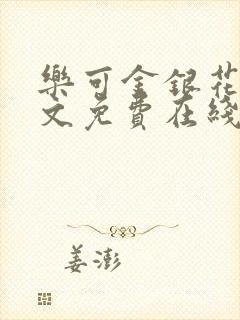 樂可金銀花
文免費在綫
姜澎